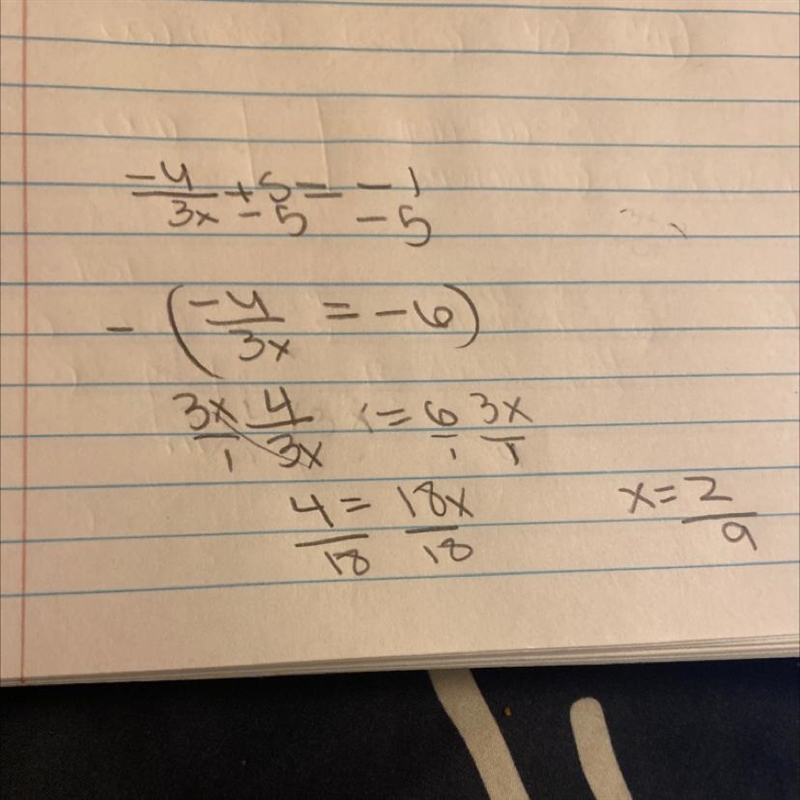 -4/3x + 5 = -1
- 5 - 5
- (-4/3x = -6)
3x/1 4/3x = 6/1 3x/1
4/18 = 18x/18 x = 2/9